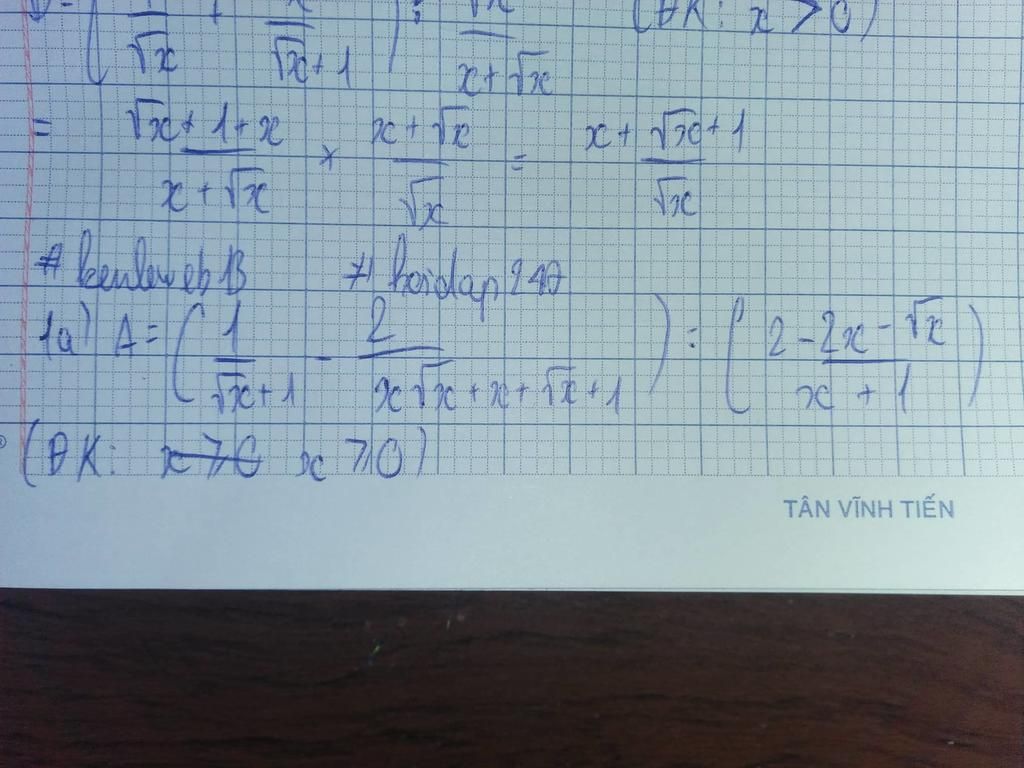 ( 1/√x + x/(√x+1) ) : √x/(x+√x) (ĐK: x > 0)
= (√x+1+x)/(x+√x) × (x+√x)/√x = (x+√x+1)/√x
# kenleweb1B # hoidap247
1a) A = ( 1/(√x+1) - 2/(x√x+x+√x+1) ) : ( (2-2x-√x)/(x+1) )
(ĐK: x ⩾ 0)
TÂN VĨNH TIẾN